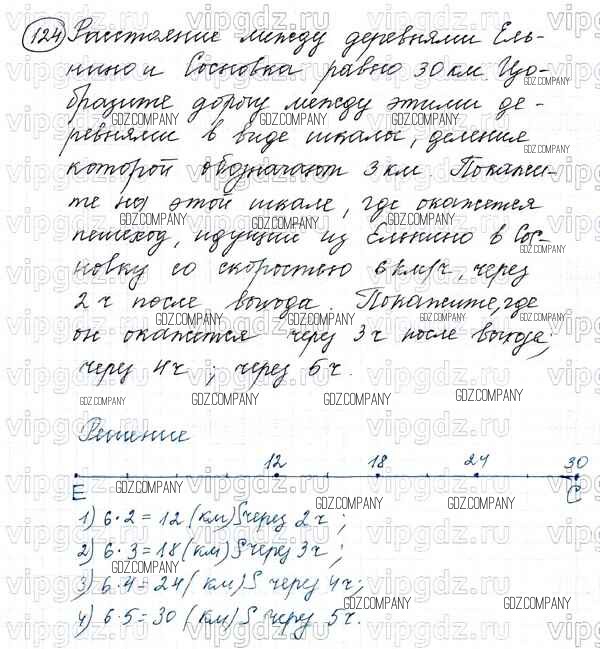 124 Расстояние между деревнями Ель-
нино и Сосновка равно 30 км. Изо-
бразите дорогу между этими де-
ревнями в виде шкалы, деления
которой обозначают 3 км. Покажи-
те на этой шкале, где окажется
пешеход, идущий из Ельнино в Сос-
новку со скоростью 6 км/ч, через
2 ч после выхода. Покажите, где
он окажется через 3 ч после выхода;
через 4 ч ; через 5 ч.
Решение
12 18 24 30
Е С
1) 6·2 = 12 (км) S через 2 ч ;
2) 6·3 = 18 (км) S через 3 ч ;
3) 6·4 = 24 (км) S через 4 ч;
4) 6·5 = 30 (км) S через 5 ч.
vipgdz.ru
GDZ.COMPANY